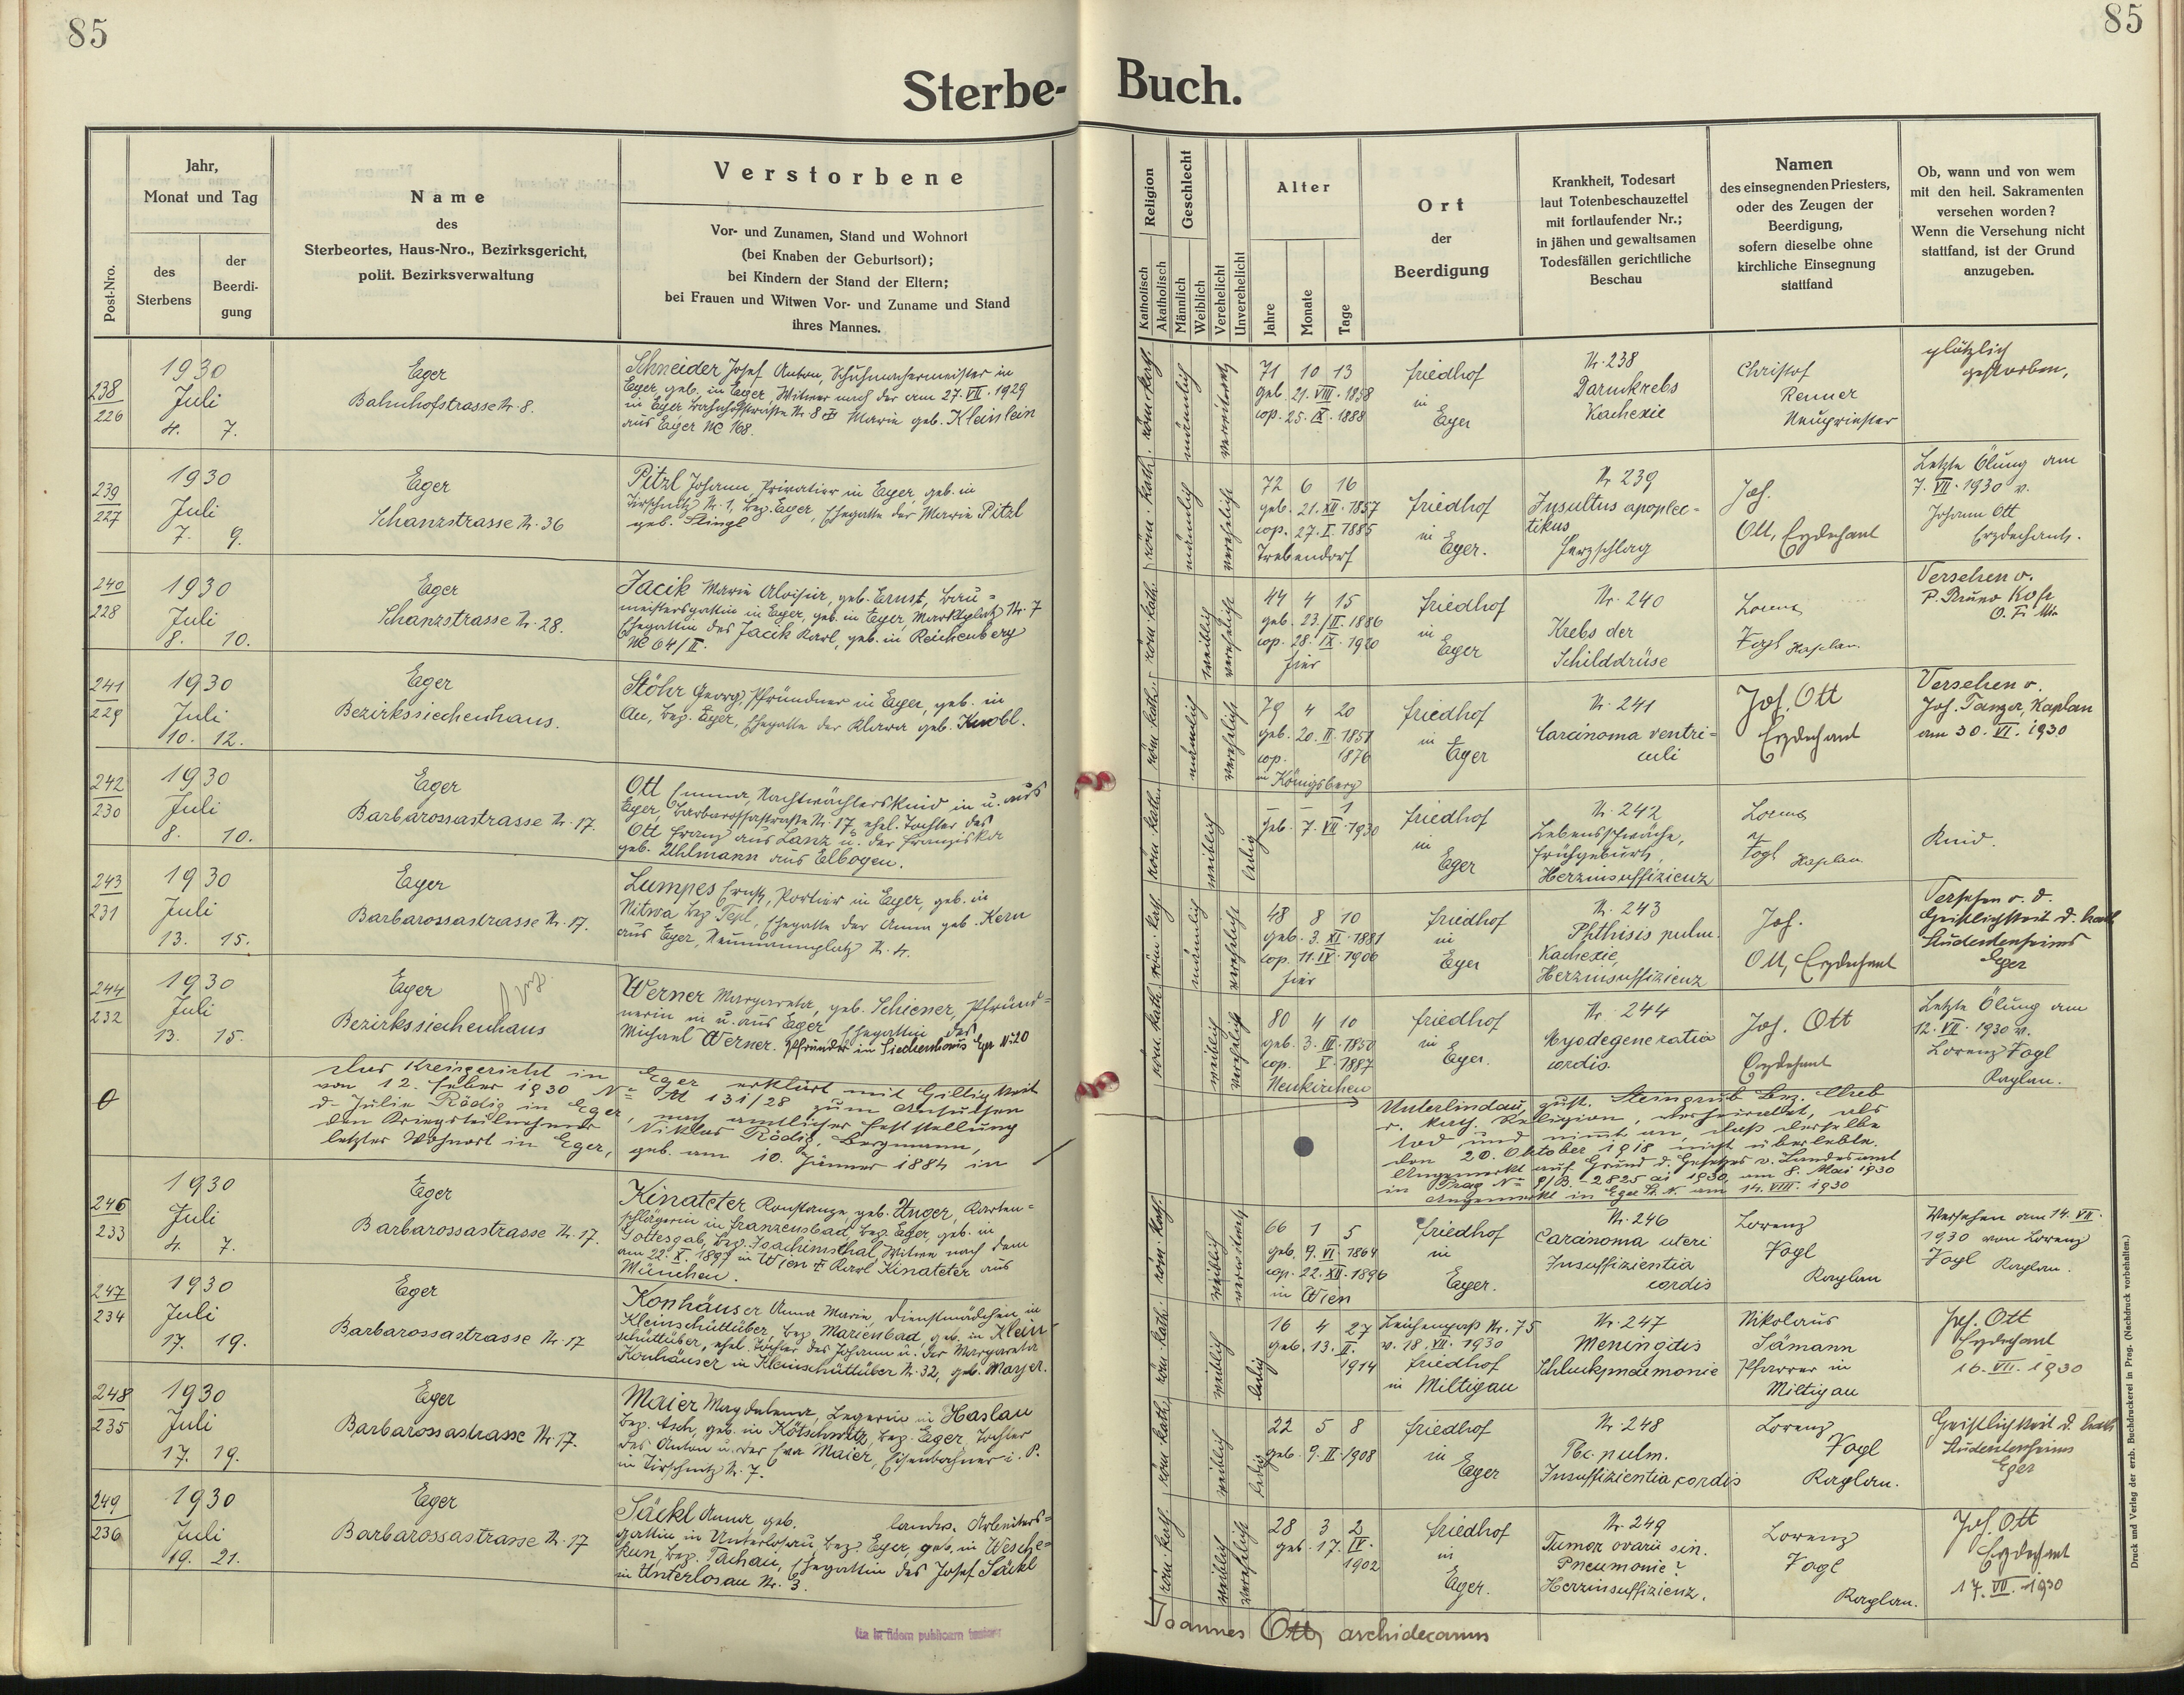 85
85
Sterbe-Buch.
Post-Nro.
Jahr,
Monat und Tag
des
Sterbens
der
Beerdi-
gung
Name
des
Sterbeortes, Haus-Nro., Bezirksgericht,
polit. Bezirksverwaltung
Verstorbene
Vor- und Zunamen, Stand und Wohnort
(bei Knaben der Geburtsort);
bei Kindern der Stand der Eltern;
bei Frauen und Witwen Vor- und Zuname und Stand
ihres Mannes.
Religion
Katholisch
Akatholisch
Geschlecht
Männlich
Weiblich
Verehelicht
Unverehelicht
Alter
Jahre
Monate
Tage
Ort
der
Beerdigung
Krankheit, Todesart
laut Totenbeschauzettel
mit fortlaufender Nr.;
in jähen und gewaltsamen
Todesfällen gerichtliche
Beschau
Namen
des einsegnenden Priesters,
oder des Zeugen der
Beerdigung,
sofern dieselbe ohne
kirchliche Einsegnung
stattfand
Ob, wann und von wem
mit den heil. Sakramenten
versehen worden?
Wenn die Versehung nicht
stattfand, ist der Grund
anzugeben.
238
226
1930
Juli
4. 7.
Eger
Bahnhofstrasse Nr. 8.
Schneider Josef Anton, Schuhmachermeister in
Eger, geb. in Eger, Witwer nach der am 27. VII. 1929
in Eger Bahnhofstraße Nr. 8 Marie geb. Kleinlein
aus Eger NC 168.
röm. kath.
männlich
verwitwet
71 10 13
geb. 21. VIII. 1858
cop. 25. IX. 1888
Friedhof
in
Eger
Nr. 238
Darmkrebs
Kachexie
Christof
Renner
Neupriester
plötzlich
gestorben,
239
227
1930
Juli
7. 9.
Eger
Schanzstrasse Nr. 36
Pitzl Johann, Privatier in Eger, geb. in
Tirschnitz Nr. 1, Bez. Eger, Ehegatte der Marie Pitzl
geb. Stingl
röm. kath.
männlich
verehelicht
72 6 16
geb. 21. XII. 1857
cop. 27. I. 1885
Trebendorf
Friedhof
in
Eger.
Nr. 239
Insultus apoplec-
tikus
Herzschlag
Joh.
Ott, Erzdechant
Letzte Ölung am
7. VII. 1930 v.
Johann Ott
Erzdechant.
240
228
1930
Juli
8. 10.
Eger
Schanzstrasse Nr. 28.
Jacik Marie Aloisia, geb. Ernst, Bau-
meistersgattin in Eger, geb. in Eger, Marktplatz Nr. 7
Ehegattin des Jacik Karl, geb. in Reichenberg
NC 64/II.
röm. kath.
weiblich
verehelicht
44 4 15
geb. 23. II. 1886
cop. 28. IX. 1920
hier
Friedhof
in
Eger
Nr. 240
Krebs der
Schilddrüse
Lorenz
Vogl Kaplan.
Versehen v.
P. Bruno
O. F. Min
241
229
1930
Juli
10. 12.
Eger
Bezirkssiechenhaus.
Stöhr Georg, Pfründner in Eger, geb. in
Au, Bez. Eger, Ehegatte der Klara geb. Knobl.
röm. kath.
männlich
verehelicht
79 4 20
geb. 20. II. 1851
cop. 1876
in Königsberg
Friedhof
in
Eger
Nr. 241
Carcinoma ventri-
culi
Joh. Ott
Erzdechant
Versehen v.
Joh. Tanzer, Kaplan
am 30. VI. 1930
242
230
1930
Juli
8. 10.
Eger
Barbarossastrasse Nr. 17.
Ott Emma, Nachtwächterskind in u. aus
Eger, Barbarossastraße Nr. 17, ehel. Tochter des
Ott Franz aus Lanz u. der Franziska
geb. Uhlmann aus Elbogen.
röm. kath.
weiblich
ledig
- - 1
geb. 7. VII. 1930
Friedhof
in
Eger
Nr. 242
Lebensschwäche,
Frühgeburt,
Herzinsuffizienz
Lorenz
Vogl Kaplan
Kind.
243
231
1930
Juli
13. 15.
Eger
Barbarossastrasse Nr. 17.
Lumpes Ernst, Portier in Eger, geb. in
Nitwa Bez. Tepl, Ehegatte der Anna geb. Kern
aus Eger, Neumannplatz Nr. 4.
röm. kath.
männlich
verehelicht
48 8 10
geb. 3. XI. 1881
cop. 11. IV. 1906
hier
Friedhof
in
Eger
Nr. 243
Phthisis pulm.
Kachexie,
Herzinsuffizienz
Joh.
Ott, Erzdechant
Versehen v. d.
Geistlichkeit d. kath
Studentenheims
Eger
244
232
1930
Juli
13. 15.
Eger
Bezirkssiechenhaus
Werner Margareta, geb. Schiener, Pfründ-
nerin in u. aus Eger, Ehegattin des
Michael Werner. Pfründer in Siechenhaus Eger Nr. 20
röm. kath.
weiblich
verehelicht
80 4 10
geb. 3. III. 1850
cop. V. 1887
Neukirchen
Friedhof
in
Eger.
Nr. 244
Myodegeneratio
cordis.
Joh. Ott
Erzdechant
Letzte Ölung am
12. VII. 1930 v.
Lorenz Vogl
Kaplan.
Das Kreisgericht in Eger erklärt mit Giltigkeit
von 12. Feber 1930 Nr. 131/28 zum Ansuchen
d. Julie Rödig in Eger, nach amtlicher Feststellung
den Kriegsteilnehmer Niklas Rödig, Bergmann,
letzter Wohnort in Eger, geb. am 10. Jänner 1884 in
Unterlindau, zust. Steingrub Bez. Cheb
r. kath. Religion, verheiratet, als
tod und nimmt an, daß derselbe
den 20. Oktober 1918 nicht überlebte.
Angemerkt auf Grund d. Gesetzes v. Landesamt
in Prag Nr. 9/B-2825 ai 1930, am 8. Mai 1930
Angemerkt in Eger am 14. VIII. 1930
246
233
1930
Juli
4. 7.
Eger
Barbarossastrasse Nr. 17.
Kinateter Konstanze geb. Unger, Karten-
schlägerin in Franzensbad, Bez. Eger, geb. in
Gottesgab, Bez. Joachimsthal, Witwe nach dem
am 22. X. 1897 in Wien Karl Kinateter aus
München.
röm. kath.
weiblich
verwitwet
66 1 5
geb. 9. VI. 1864
cop. 22. XII. 1896
in Wien
Friedhof
in
Eger.
Nr. 246
Carcinoma uteri
Insuffizientia
cordis
Lorenz
Vogl
Kaplan
Versehen am 14. VII.
1930 von Lorenz
Vogl Kaplan.
247
234
1930
Juli
17. 19.
Eger
Barbarossastrasse Nr. 17
Konhäuser Anna Marie, Dienstmädchen in
Kleinschüttüber, Bez. Marienbad, geb. in Klein
schüttüber, ehel. Tochter des Johann u. der Margareta
Konhäuser in Kleinschüttüber Nr. 32, geb. Mayer.
röm. kath.
weiblich
ledig
16 4 27
geb. 13. II.
1914
Leichenpaß Nr. 75
v. 18. VII. 1930
Friedhof
in Miltigau
Nr. 247
Meningitis
Schluckpneumonie
Nikolaus
Sämann
Pfarrer in
Miltigau
Joh. Ott
Erzdechant
16. VII. 1930
248
235
1930
Juli
17. 19.
Eger
Barbarossastrasse Nr. 17.
Maier Magdalena, Legerin in Haslau
Bez. Asch, geb. in Kötschwitz, Bez. Eger, Tochter
des Anton u. der Eva Maier, Eisenbahner i. P.
in Tirschnitz Nr. 7.
röm. kath.
weiblich
ledig
22 5 8
geb. 9. II. 1908
Friedhof
in
Eger
Nr. 248
Tbc. pulm.
Insuffizientia cordis
Lorenz
Vogl
Kaplan.
Geistlichkeit d. kath
Studentenheims
Eger
249
236
1930
Juli
19. 21.
Eger
Barbarossastrasse Nr. 17
Säckl Anna geb. Landw. Arbeiters-
gattin in Unterlosau, Bez. Eger, geb. in Wesche-
kun, Bez. Tachau, Ehegattin des Josef Säckl
in Unterlosau Nr. 3.
röm. kath.
weiblich
verehelicht
28 3 2
geb. 17. IV.
1902
Friedhof
in
Eger.
Nr. 249
Tumor ovarii sin.
Pneumonie?
Herzinsuffizienz.
Lorenz
Vogl
Kaplan.
Joh. Ott
Erzdechant
17. VII. 1930
Ita in fidem publicam testor
Joannes Ott, archidecanus
Druck und Verlag der erzb. Buchdruckerei in Prag. (Nachdruck vorbehalten.)